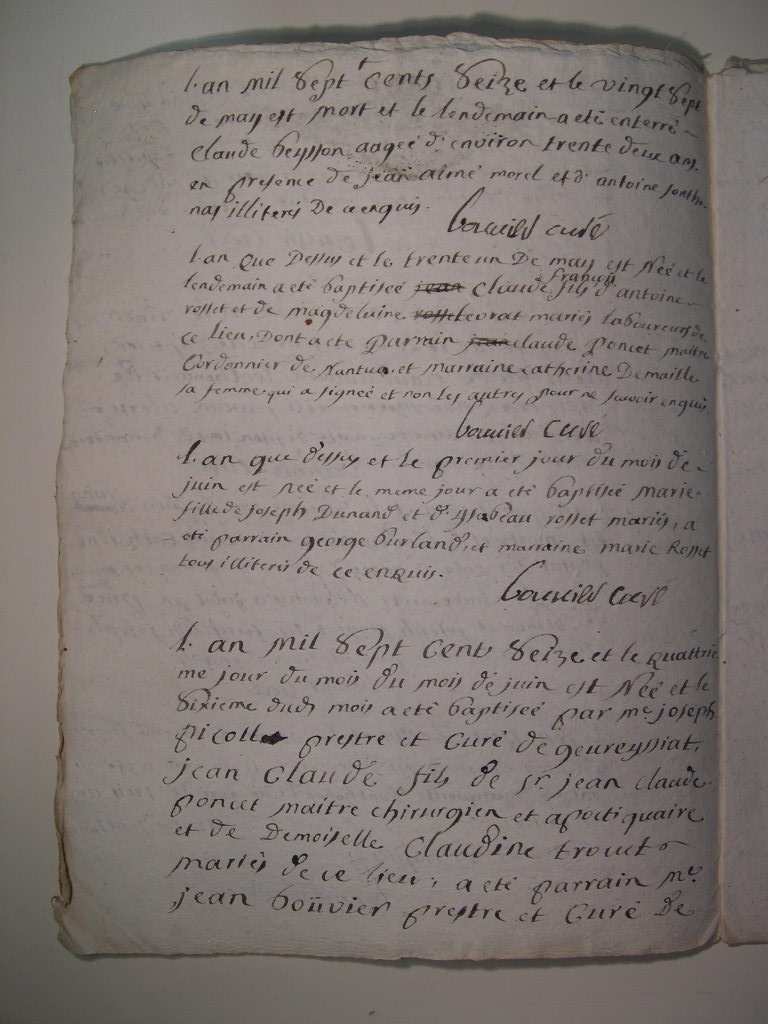 L'an mil sept cents seize et le vingt sept
de may est mort et le lendemain a eté enterré
Claude beysson aageé d'environ trente deux ans.
en presence de jean aimé morel et d'antoine jontho-
nas illiterés de ce enquis.
bouvier curé
L'an que Dessus et le trente un De may est Née et le
lendemain a eté baptiseé jean Claude françois fils d'antoine
rosset et de magdelaine rosset evrat mariés laboureurs de
ce lieu, Dont a ete parrain jean claude poncet maitre
Cordonnier de Nantua, et marraine catherine Demaille
sa femme qui a signeé et non les autres pour ne scavoir enquis
bouvier Curé
L'an que dessus et le premier jour du mois de
juin est neé et le meme jour a eté baptiseé marie
fille de joseph Dunand et d'ysabeau rosset mariés, a
eté parrain george burland, et marraine marie Rosset
tous illiterés de ce enquis.
bouvier curé
L'an mil sept cents seize et le quattrié
me jour du mois du mois de juin est Neé et le
sixieme dud mois a eté baptiseé par mre joseph
picolle prestre et Curé de geureyssiat,
jean Claude fils de sr. jean claude
poncet maitre chirurgien et apoctiquaire
et de Demoiselle Claudine trouct
mariés de ce lieu, a eté parrain mre.
jean boüvier prestre et Curé De